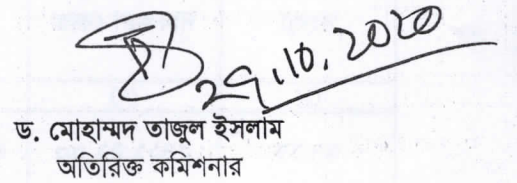 29.10.2020
ড. মোহাম্মদ তাজুল ইসলাম
অতিরিক্ত কমিশনার